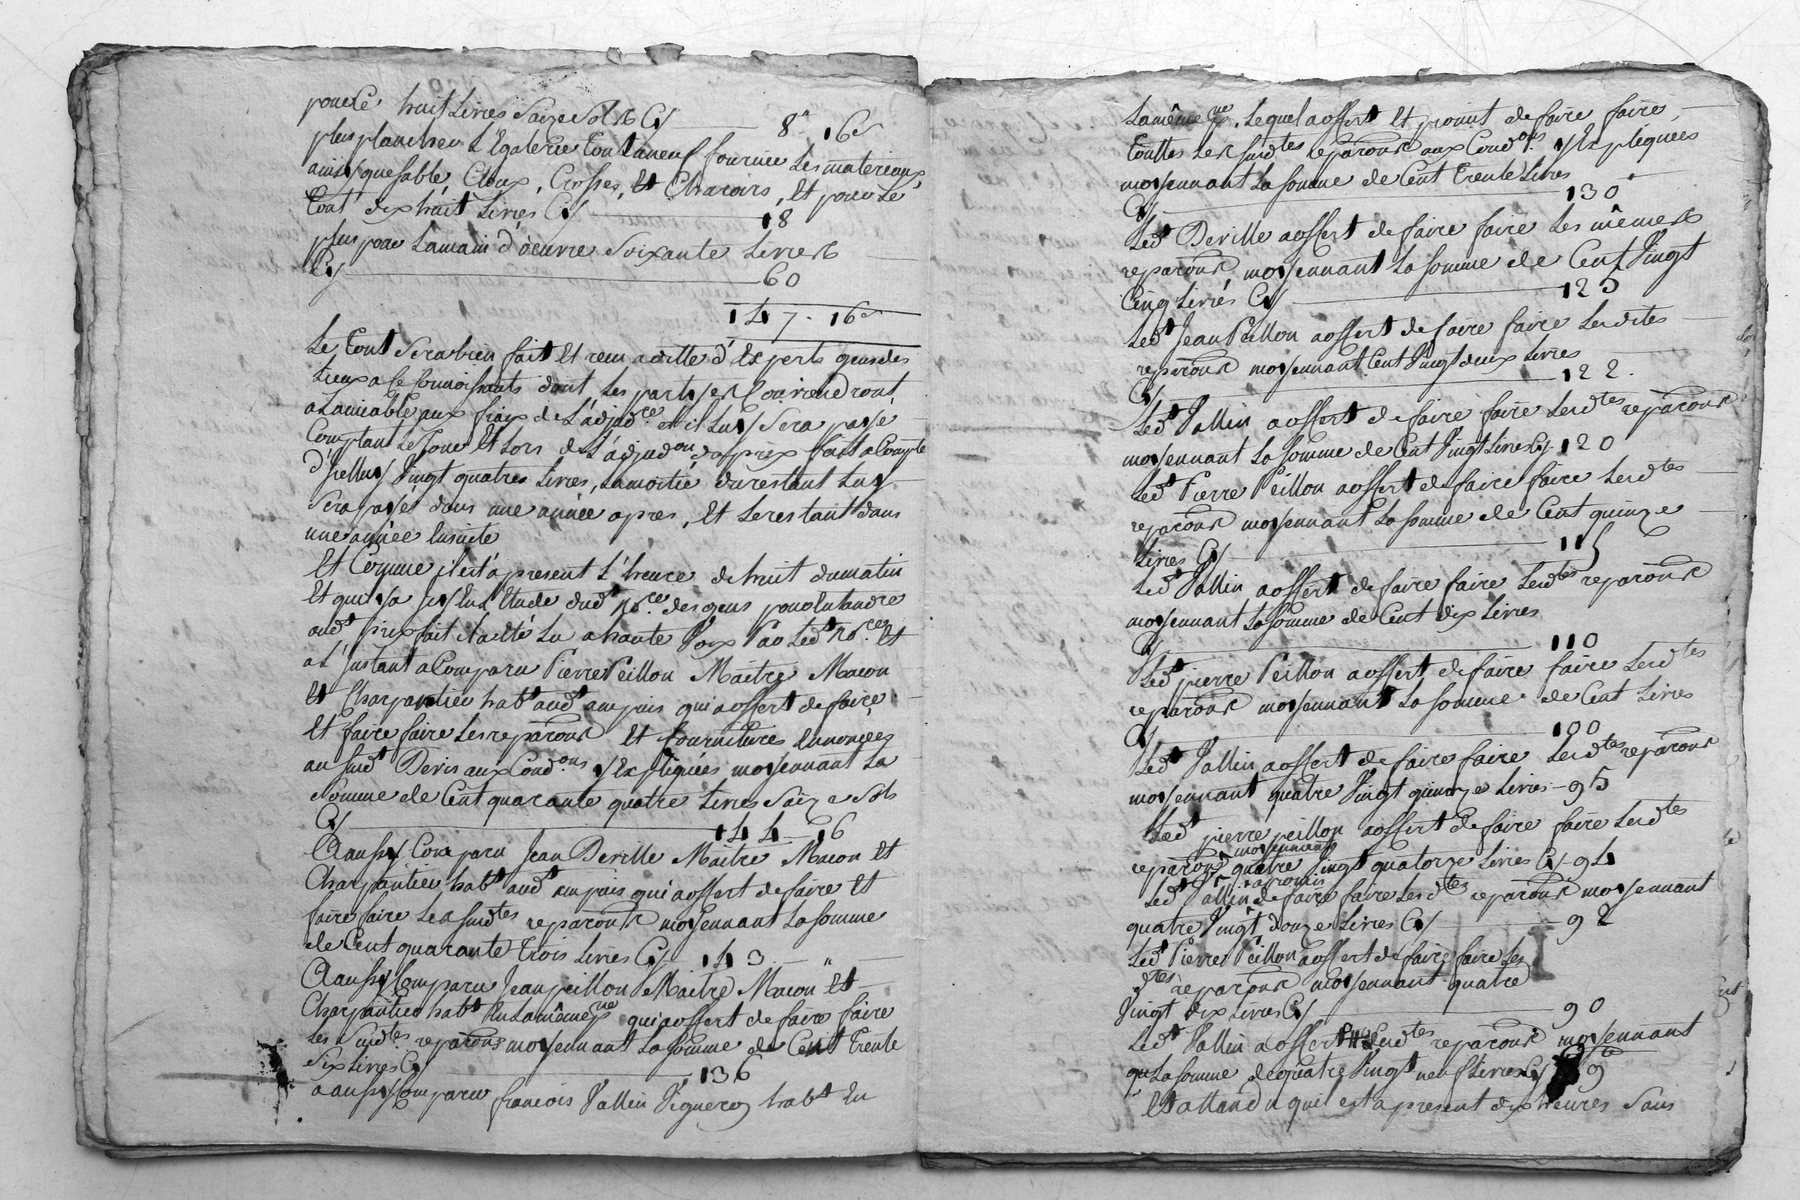 pour ce huit Livres Saize Sols Cy 8# 16s
plus planchers L'Egalerie tout aneuf fournir Les materiaux
ainsy que sable, Cloux, Crosses, Et Charois, Et pour Le
tout dix huit Livres Cy 18
plus pour Lamain d'oeuvre Soixante Livres
Cy 60
147. 16s
Le tout Sera bien fait Et reçu adille d'Experts gens des
tieux a ce Connoissants dont Les partyes Conviendront
a Lamiable aux fraix de L'adjudre et il Luy Sera payé
Comptant Le Jour Et Lors de L'adjudon dupris fait a Compte
d'Jcelluy Vingt quatres Livres, Lamoitié durestant Luy
Sera payés dans une année apres, Et Lerestant dans
une année Ensuite
Et Comme il est a present L'heure de huit dumatin
Et quil ya Jcy En L'Etude dudt Nore des gens pour Entandre
audt prixfait il a Eté Lu a haute Voix Par Ledt Nore Et
a L'Justant a Comparu Pierre Peillon Maitre Macon
Et Charpantier habt audt ampuis qui a offert de faire
Et faire faire Les reparons Et fournitures Ennoncées
au Susdt Devis aux Condons y Expliquées moyennant La
Somme de Cent quarante quatre Livres Saize Sols
Cy 144 16
A aussy Comparu Jean Deville Maitre Macon Et
Charpantier habt audt ampuis qui a offert de faire Et
faire faire Les susdtes reparons moyennant La Somme
de Cent quarante trois Livres Cy 143 "
A aussy Comparu Jean peillon Maitre Macon Et
Charpantier habt En Lamême pne qui a offert de faire faire
Les Susdtes reparons moyennant La Somme de Cent trente
Six Livres Cy 136
a aussy Comparu francois Vallin Vigneron habt En
Lamême pne. Lequel a offert Et promit de faire faire
touttes Les susdtes reparons aux Condons y Expliquées
moyennant La Somme de Cent trente Livres
Cy 130
Ledt Deville a offert de faire faire Les mêmes
reparons moyennant La Somme de Cent Vingt
Cinq Livres Cy 125
Ledt Jean Peillon a offert de faire faire Lesdites
reparons moyennant Cent Vingt deux Livres
Cy 122.
Ledt Vallin a offert de faire faire Lesdtes reparons
moyennant La Somme de Cent Vingt Livres Cy 120
Ledt Pierre Peillon a offert de faire faire Lesdtes
reparons moyennant La Somme de Cent quinze
Livres Cy 115
Ledt Vallin a offert de faire faire Lesdtes reparons
moyennant La Somme de Cent dix Livres
Cy 110
Ledt pierre Peillon a offert de faire faire Lesdtes
reparons moyennant La Somme de Cent Livres
Cy 100
Ledt Vallin a offert de faire faire Lesdtes reparons
moyennant quatre Vingt quinze Livres 95
Ledt pierre peillon a offert de faire faire Lesdtes
reparons moyennant quatre Vingt quatorze Livres Cy 94
Ledt Vallin a promis de faire faire Lesdtes reparons moyennant
quatre Vingt douze Livres Cy 92
Ledt Pierre Peillon a offert de faire faire Les
dtes reparons moyennant quatre
Vingt dix Livres Cy 90
Ledt Vallin a offert Lesdtes reparons moyennant
La Somme de quatre Vingt neuf Livres Cy 89
Et attandu quil est a present dix heures Sans